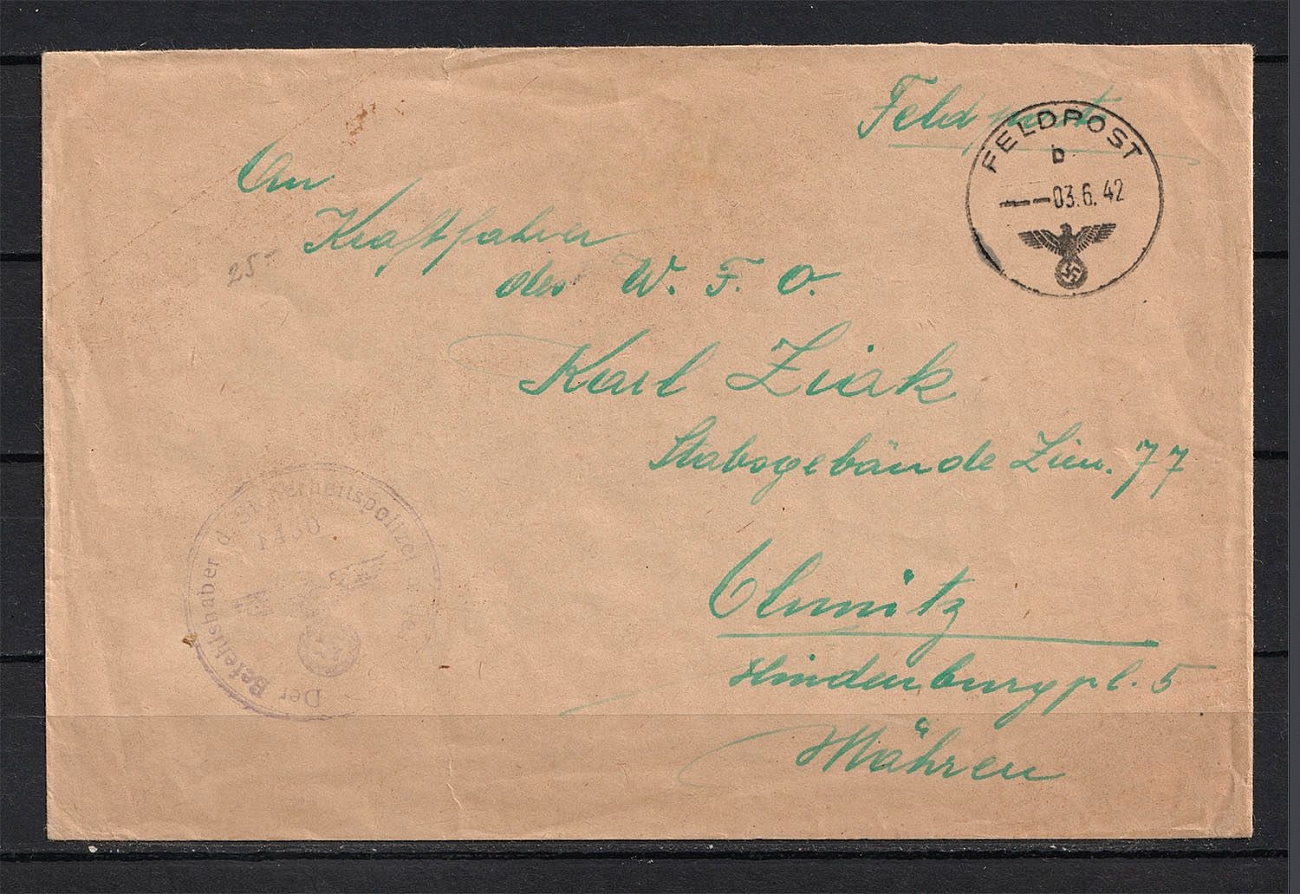 Feldpost
FELDPOST
b
--03.6.42
An
Kraftfahrer
des W. F. O.
25-
Karl Ziak
Stabsgebäude Zim. 77
Olmütz
Hindenburgpl. 5
Mähren
Der Befehlshaber d. Sicherheitspolizei